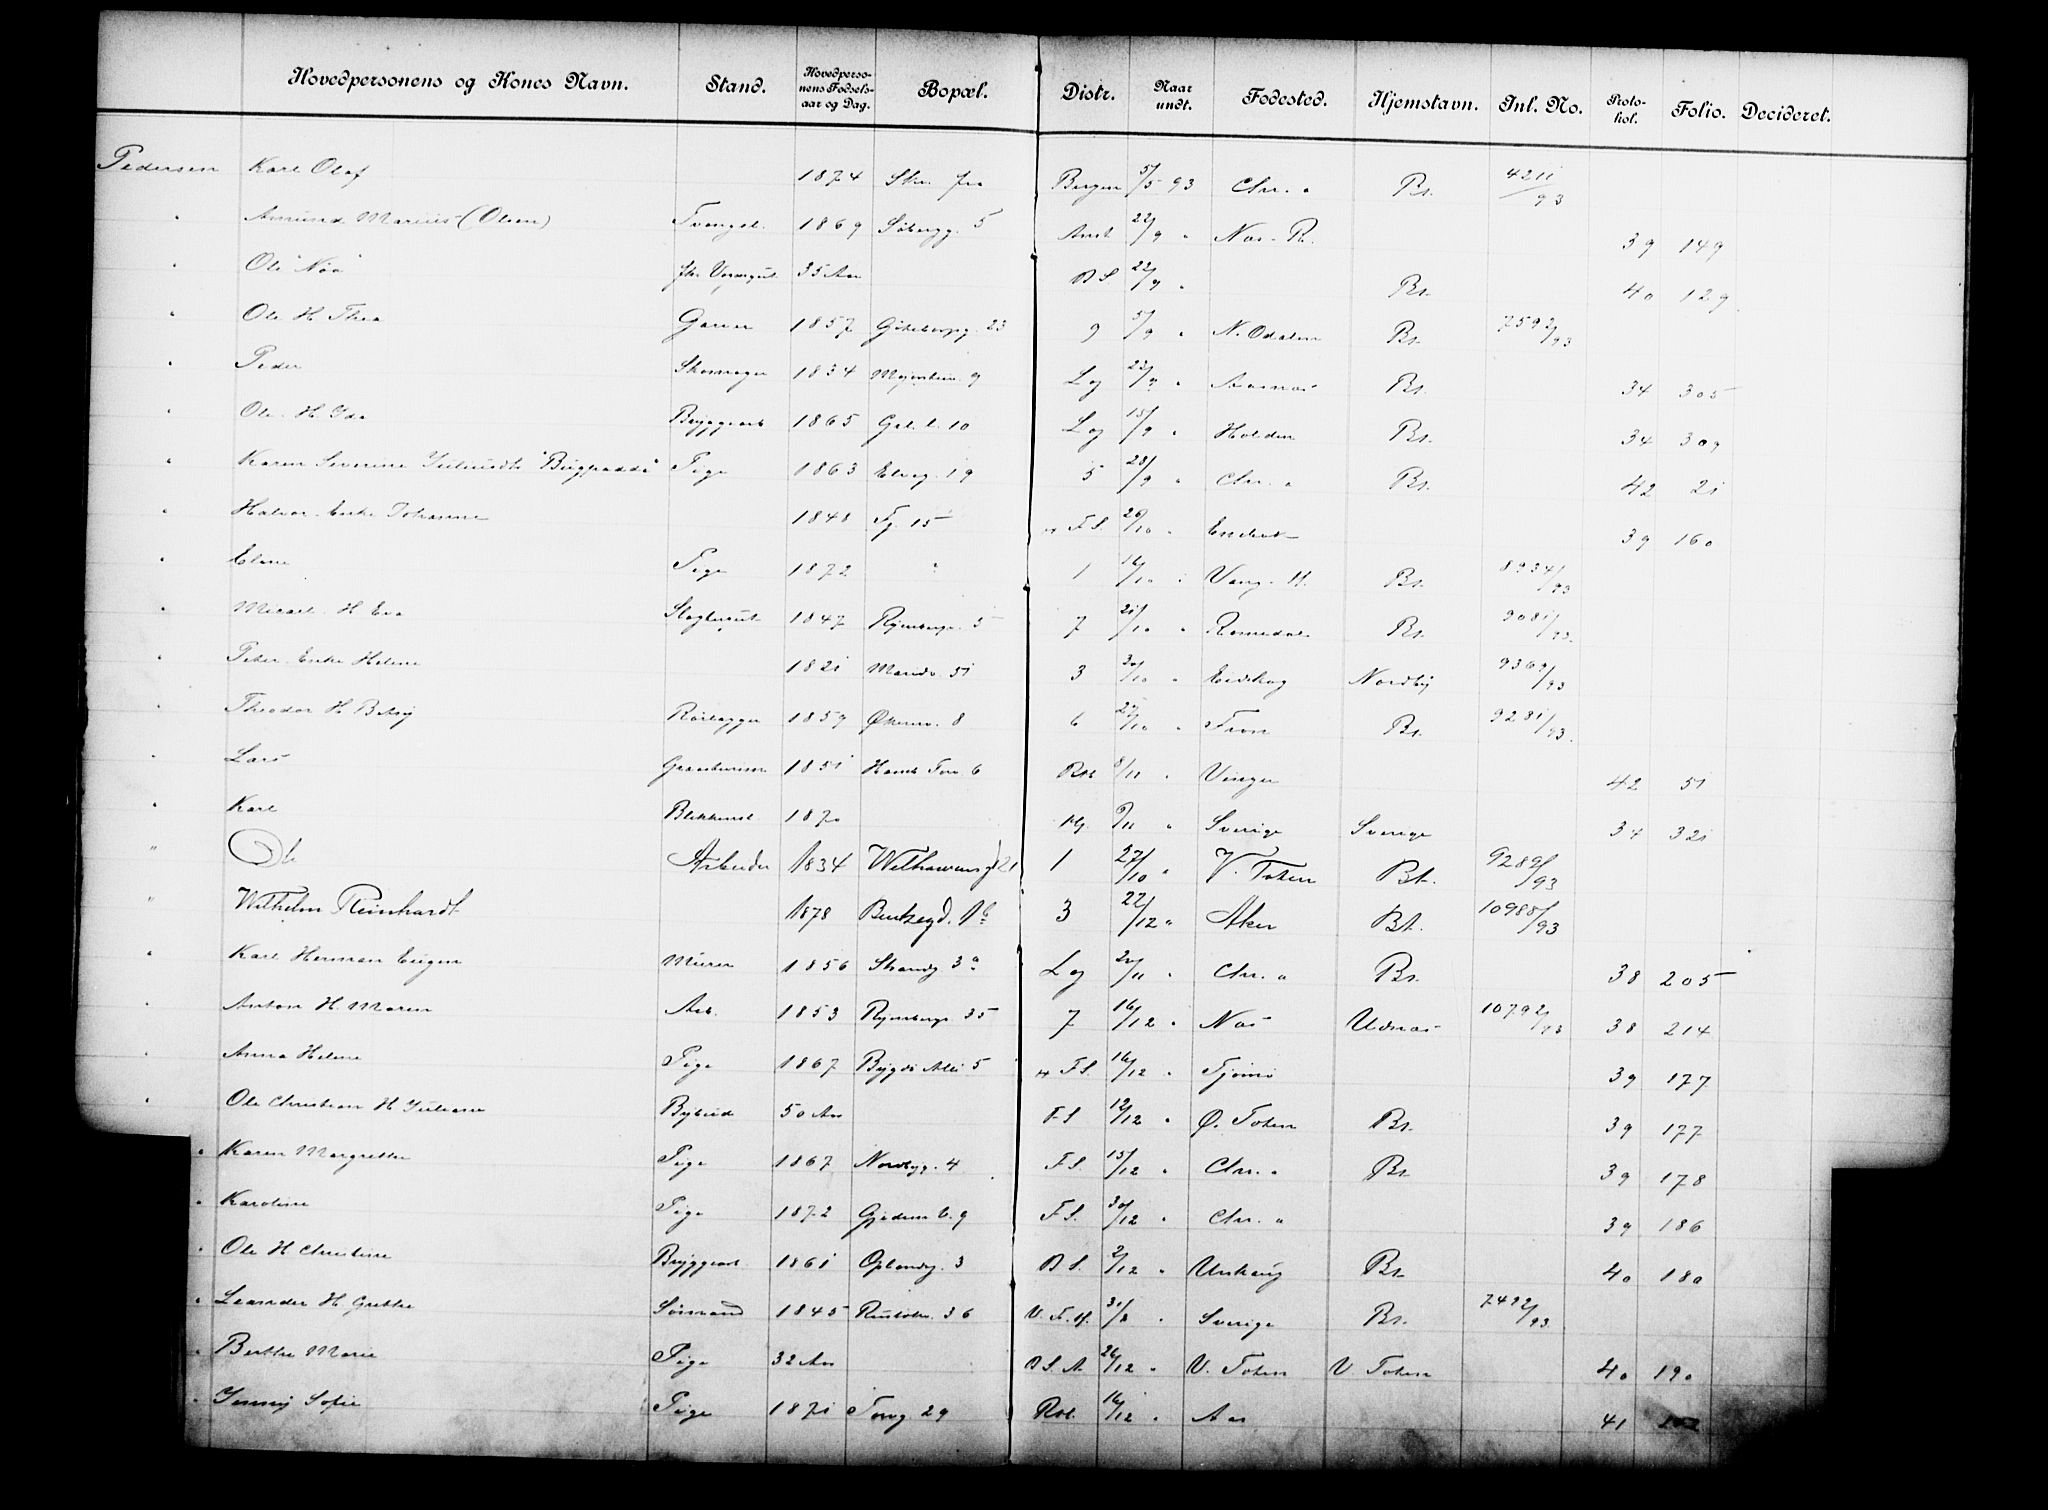 Hovedpersonens og Kones Navn. Stand. Hovedpersonens Fødselsaar og Dag. Bopæl. Distr. Naar undt. Fødested. Hjemstavn. Inl. No. Protokol. Folio. Decideret.
Pedersen Karl Olaf 1874 Skr. fra Bergen 5/5 93 Chr. a Bt. 4211/93
" Amund Marius (Olsen) Tvangsl. 1869 Söbergg. 5 22/9 " Nes. R. 39 149
" Ole "Nöa" 35 Aar D S. 22/9 " Bt. 40 129
" Ole H. Thea Garver 1857 Göteborgg. 23 9 5/9 " N. Odalen Bt. 7592/93
" Peder Skomager 1834 9 Lg 22/9 " Aasnes Bt. 34 305
" Ole. H. Ida Bryggearb 1865 10 Lg 15/9 " Holden Bt. 34 309
" Karen Severine "Bugpadda" Pige 1863 Elveg. 19 5 28/9 " Chr. a Bt. 42 21
" Halvor. Enke Johanne 1848 15 F S. 26/10 " 39 160
" Eline Pige 1872 " 1 16/10 " Vang. H. Bt. 8934/93
" Mikael. H. Eva 1847 Rejenbergs. 5 7 21/10 " Romedal Bt. 9081/93
" Peter. Enke Helene 1821 Maridv. 51 3 30/10 " Eidskog Nordby 9369/93
" Theodor H. Betsy Rörlægger 1859 Økernv. 8 6 27/10 " Fron Bt. 9281/93
" Lars 1851 Hamb Torv 6 8/11 " Vinger 42 51
" Karl Blikkensl. 1870 9/11 " Sverige Sverige 34 321
" Ole Arbeider 1834 Welhavensgd 21 1 27/10 " V. Toten Bt. 9289/93
" Wilhelm Reinhardt 1878 Bentsegd. 3 22/12 " Aker Bt. 10988/93
" Karl Herman Eugen Murer 1856 Strandg 3a Lg 20/11 " Chr. a Bt. 38 205
" Anton H. Maren Arb. 1853 Rejenbergs. 35 7 16/12 " Nes Udnes 10792/93 38 214
" Anna Helene Pige 1867 Bygdö Alle 5 F S. 16/12 " Tjömö 39 177
" Ole Christian H. Juliane Bybud 50 Aar F. S 12/12 " Ø. Toten Bt. 39 177
" Karen Margrethe Pige 1867 Nordbyg. 4 F S. 15/12 " Chr. a Bt. 39 178
" Karoline Pige 1872 9 F S. 30/12 " Chr. a 39 186
" Ole H. Christine Bryggearb. 1861 Oplandg. 3 D S. 2/12 " Urskoug Bt. 40 180
" Leander H. Grethe Sömand 1845 36 V. F. H. 31/8 " Sverige Bt. 7492/93
" Berthe Marie Pige 32 Aar D S. A. 26/12 " V. Toten V Toten 40 190
" Jenny Sofie Pige 1871 Torvg 29 16/12 " Aas 41